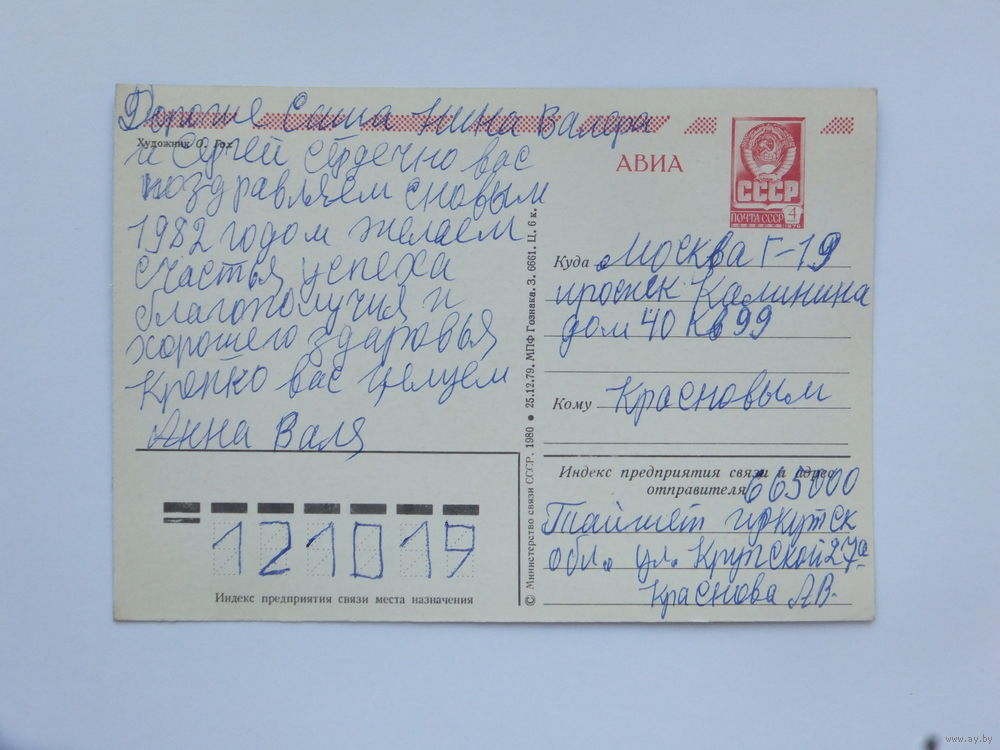 Дорогие Саша Нина Валера
Художник О. Гох
и Сергей сердечно вас
поздравляем сновым
1982 годом желаем
счастья успеха
благополучия и
хорошего здаровья
Крепко вас целуем
Анна Валя
Индекс предприятия связи места назначения
121019
© Министерство связи СССР, 1980 ● 25.12.79. МПФ Гознака. З. 6661. Ц. 6 к.
АВИА
СССР
ПОЧТА СССР 4
1976
Куда Москва Г-19
проспек Калинина
дом 40 кв 99
Кому Красновым
Индекс предприятия связи и адрес
отправителя 665000
Тайшет иркутск
обл. ул. Крупской 27а
Краснова А В.
www.ay.by